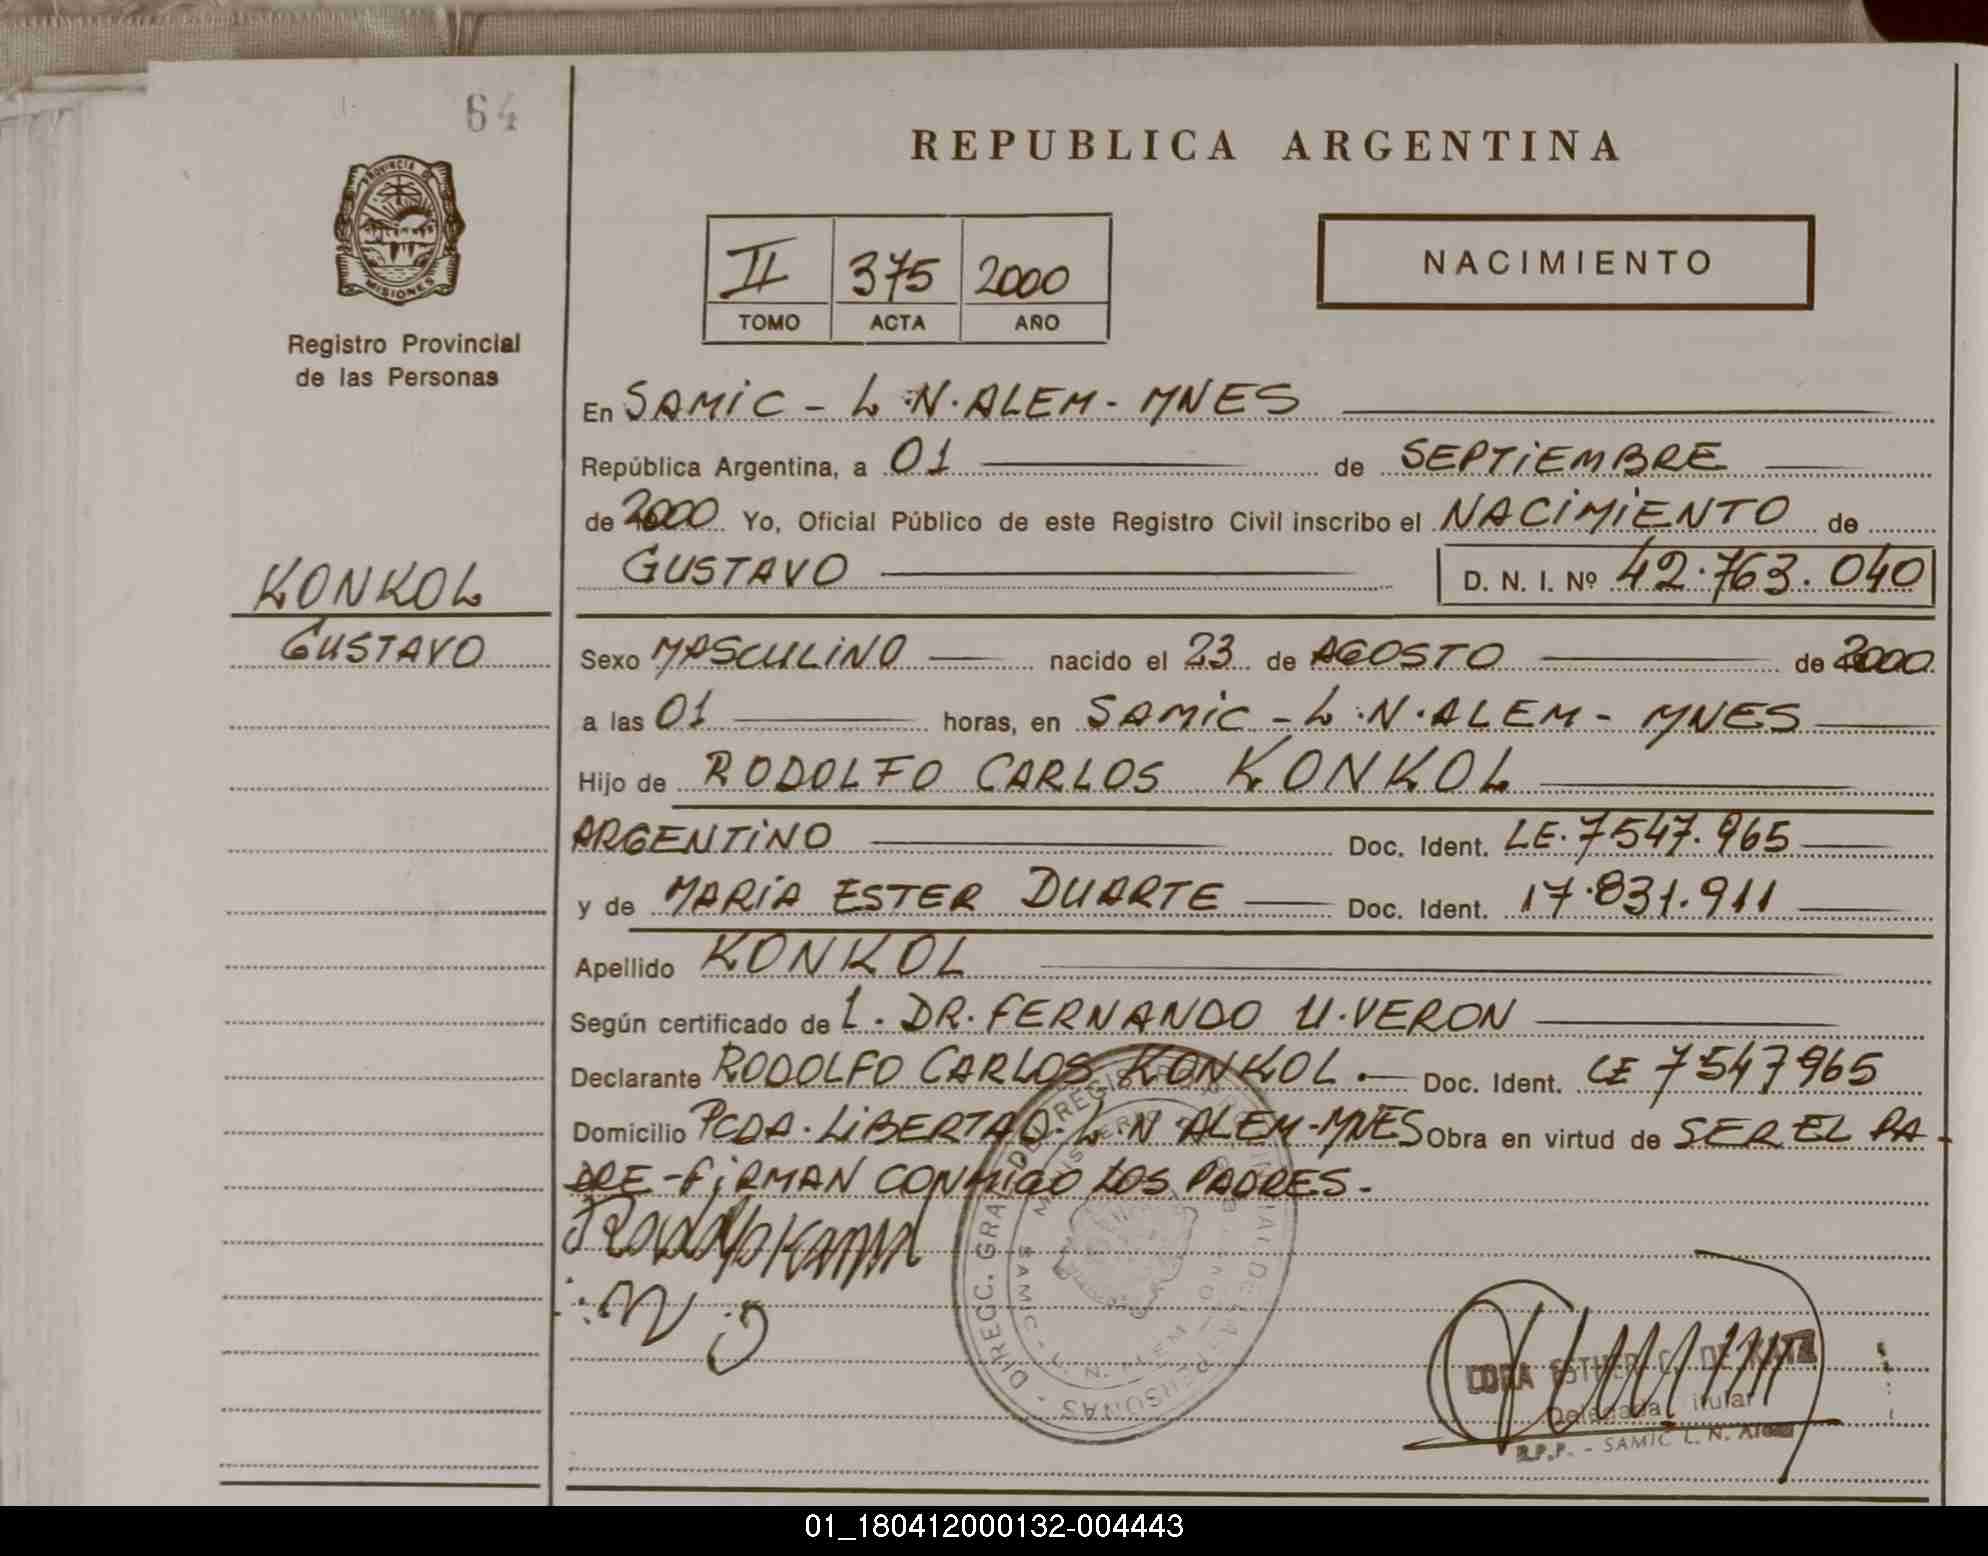 64
PROVINCIA DE
MISIONES
Registro Provincial
de las Personas
KONKOL
GUSTAVO
REPUBLICA ARGENTINA
II 375 2000
TOMO ACTA AÑO
NACIMIENTO
En SAMIC - L.N. ALEM - MNES
República Argentina, a 01 de SEPTIEMBRE
de 2000 Yo, Oficial Público de este Registro Civil inscribo el NACIMIENTO de
GUSTAVO D. N. I. Nº 42.763.040
Sexo MASCULINO nacido el 23 de AGOSTO de 2000
a las 01 horas, en SAMIC - L.N. ALEM - MNES
Hijo de RODOLFO CARLOS KONKOL
ARGENTINO Doc. Ident. LE. 7547.965
y de MARIA ESTER DUARTE Doc. Ident. 17.831.911
Apellido KONKOL
Según certificado de L. DR. FERNANDO U. VERON
Declarante RODOLFO CARLOS KONKOL.- Doc. Ident. LE 7547965
Domicilio PCDA. LIBERTAD. L.N ALEM-MNES Obra en virtud de SER EL PA
DRE - FIRMAN CONMIGO LOS PADRES.
DIRECC. GRAL. DEL REGISTRO PROVINCIAL DE LAS PERSONAS
SAMIC - L. N. ALEM
ESTHER C. DE
Delegada Titular
R.P.P. - SAMIC L. N. Alem
01_180412000132-004443